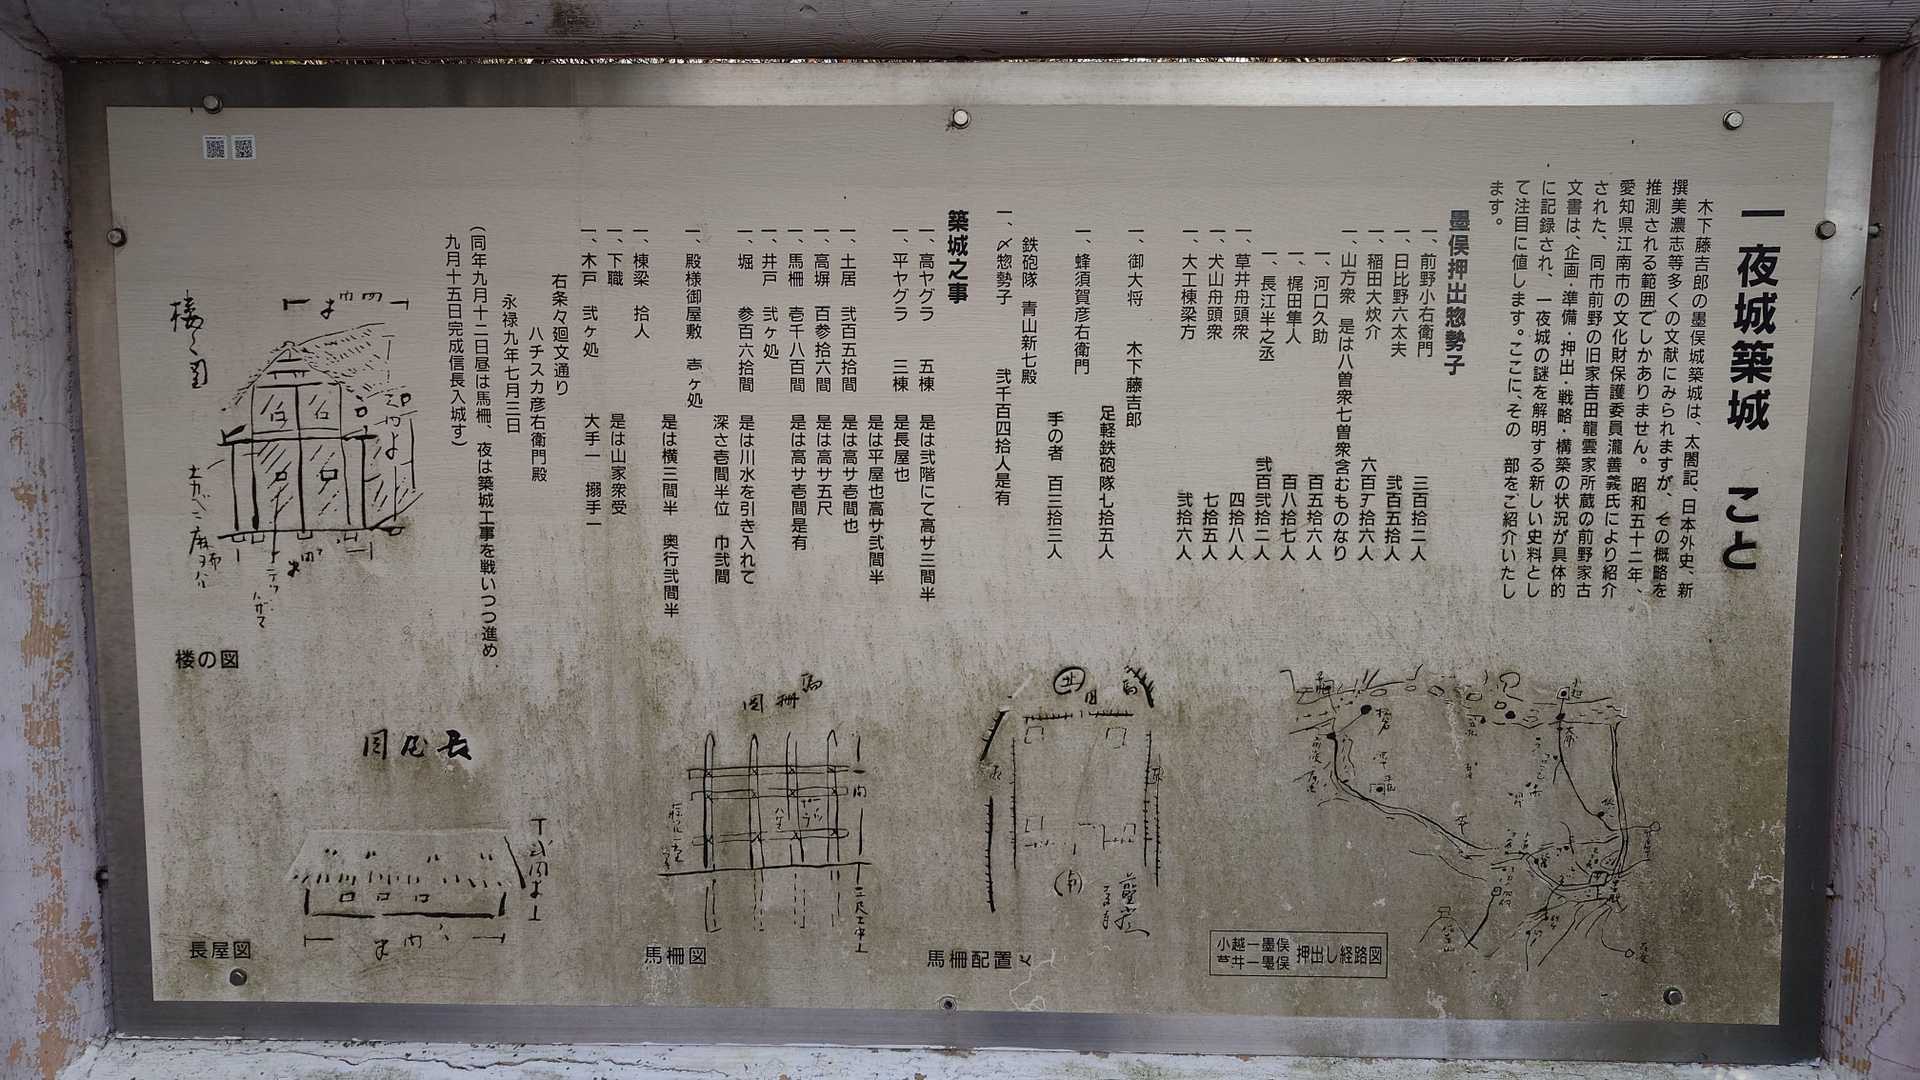 一夜城築城 こと
木下藤吉郎の墨俣城築城は、太閤記、日本外史、新
撰美濃志等多くの文献にみられますが、その概略を
推測される範囲でしかありません。昭和五十二年、
愛知県江南市の文化財保護委員瀧善義氏により紹介
された、同市前野の旧家吉田龍雲家所蔵の前野家古
文書は、企画・準備・押出・戦略・構築の状況が具体的
に記録され、一夜城の謎を解明する新しい史料とし
て注目に値します。ここに、その 部をご紹介いたし
ます。
墨俣押出惣勢子
一、前野小右衛門 三百拾二人
一、日比野六太夫 弐百五拾人
一、稲田大炊介 六百 拾六人
一、山方衆 是は八曽衆七曽衆含むものなり
一、河口久助 百五拾六人
一、梶田隼人 百八拾七人
一、長江半之丞 弐百弐拾二人
一、草井舟頭衆 四拾八人
一、犬山舟頭衆 七拾五人
一、大工棟梁方 弐拾六人
一、御大将 木下藤吉郎
足軽鉄砲隊七拾五人
一、蜂須賀彦右衛門
手の者 百三拾三人
鉄砲隊 青山新七殿
一、〆惣勢子 弐千百四拾人是有
築城之事
一、高ヤグラ 五棟 是は弐階にて高サ三間半
一、平ヤグラ 三棟 是長屋也
是は平屋也高サ弐間半
一、土居 弐百五拾間 是は高サ壱間也
一、高塀 百参拾六間 是は高サ五尺
一、馬柵 壱千八百間 是は高サ壱間是有
一、井戸 弐ヶ処
一、堀 参百六拾間 是は川水を引き入れて
深さ壱間半位 巾弐間
一、殿様御屋敷 壱ヶ処
是は横三間半 奥行弐間半
一、棟梁 拾人
一、下職 是は山家衆受
一、木戸 弐ヶ処 大手一 搦手一
右条々廻文通り
ハチスカ彦右衛門殿
永禄九年七月三日
(同年九月十二日昼は馬柵、夜は築城工事を戦いつつ進め、
九月十五日完成信長入城す)
楼の図
長屋図
馬柵図
馬柵配置
小越ー墨俣
草井ー墨俣
押出し経路図